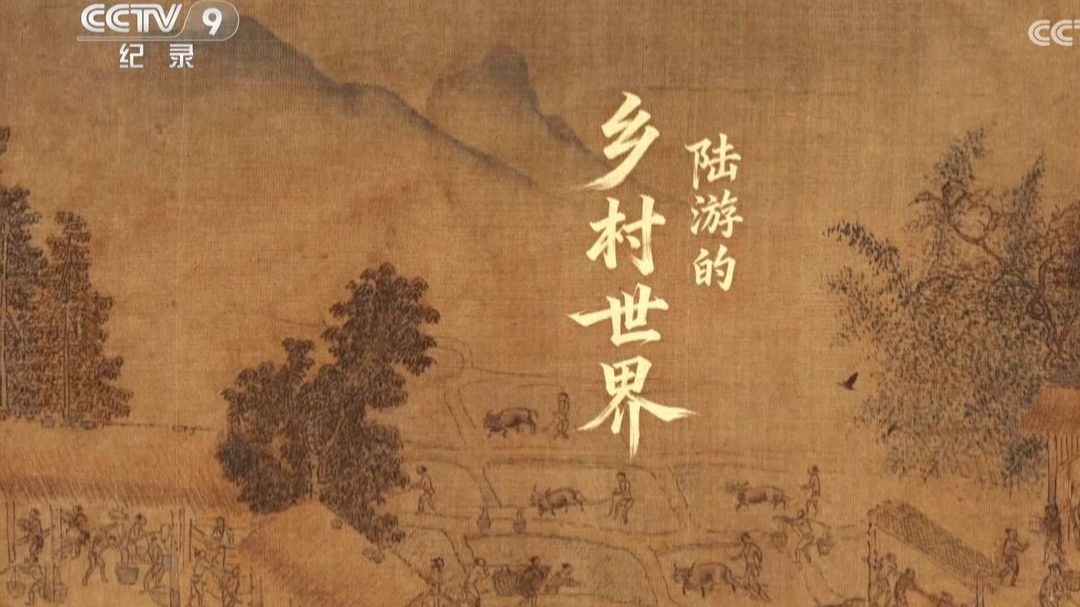 CCTV 9
纪录
CC
陆游的
乡村世界